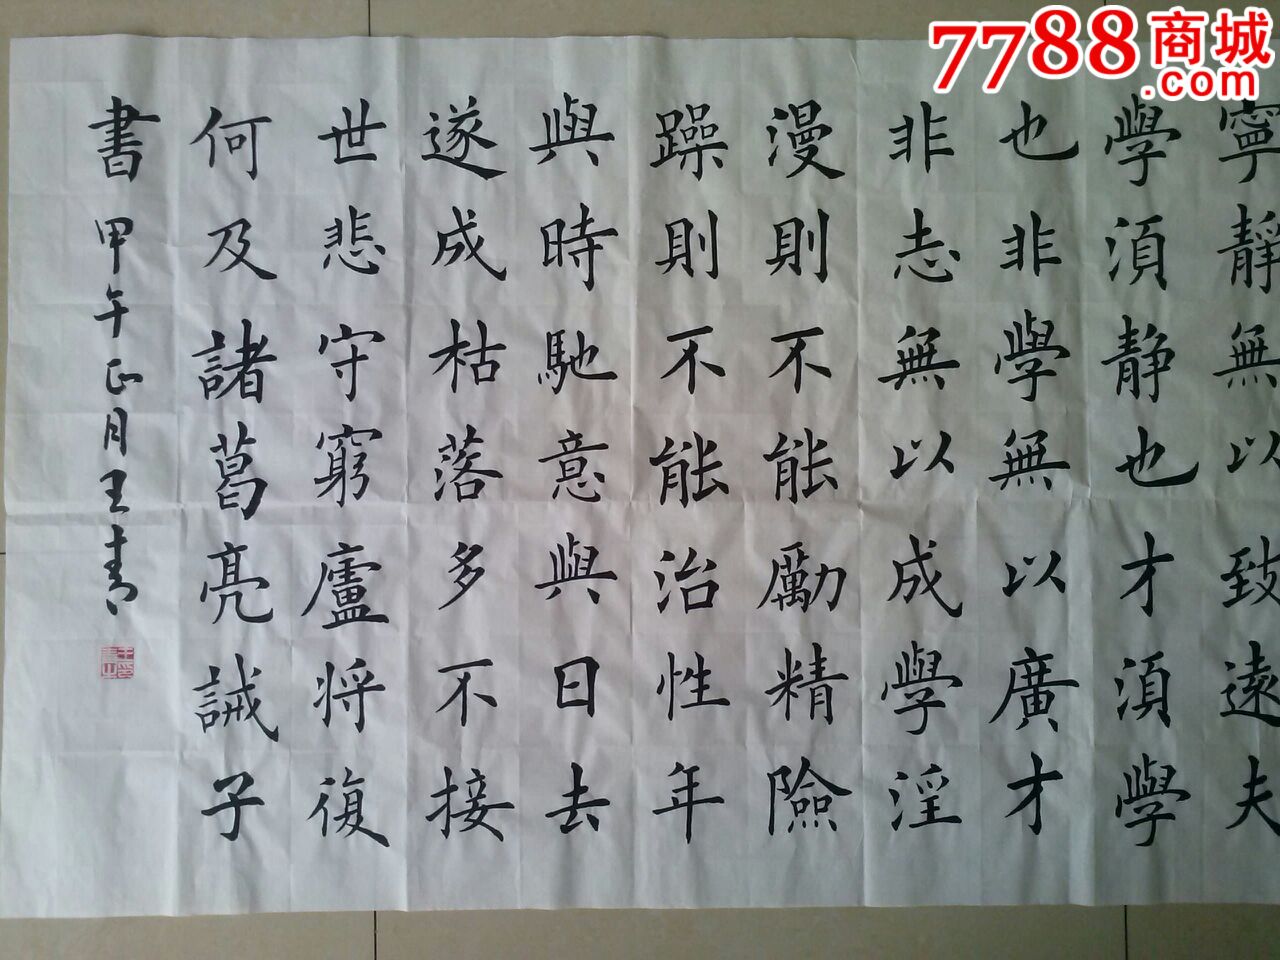 7788商城
.com
寧靜無以致遠夫
學須静也才須學
也非學無以廣才
非志無以成學淫
漫則不能勵精險
躁則不能治性年
與時馳意與日去
遂成枯落多不接
世悲守窮廬将復
何及諸葛亮誡子
書甲午正月王青